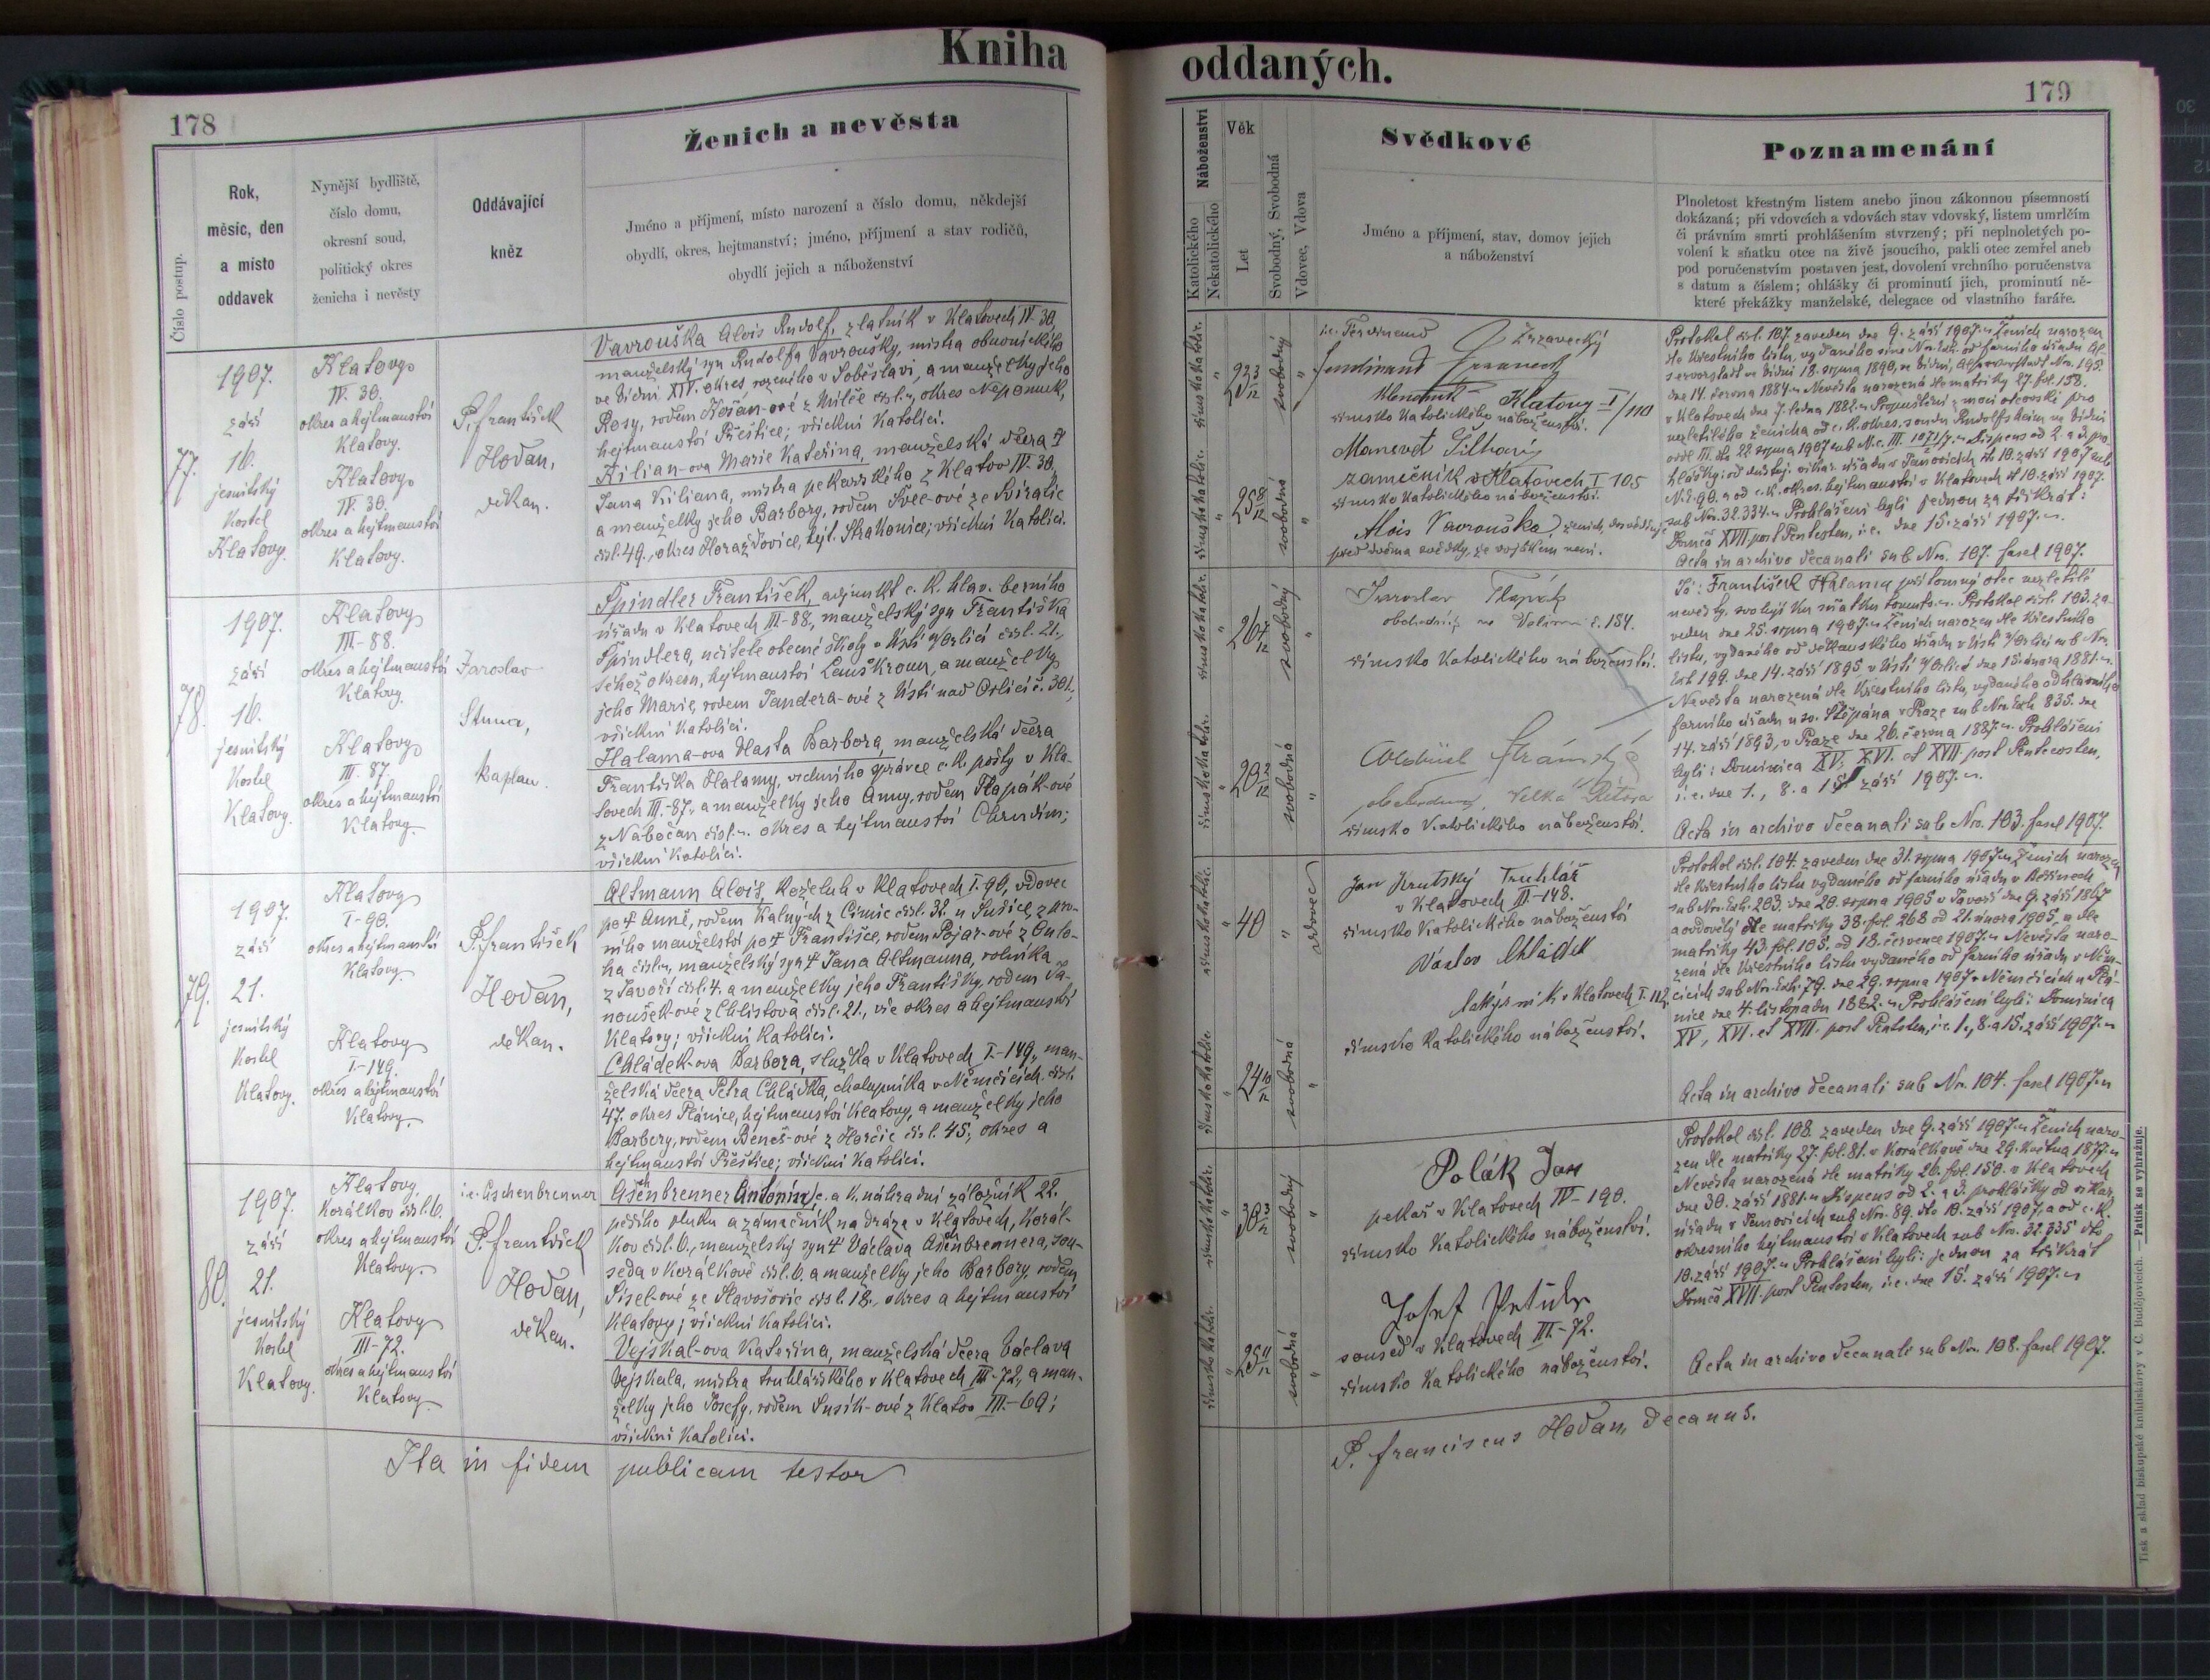 Kniha
178
Číslo postup.
Rok,
měsíc, den
a místo
oddavek
Nynější bydliště,
číslo domu,
okresní soud,
politický okres
ženicha i nevěsty
Oddávající
kněz
Ženich a nevěsta
Jméno a příjmení, místo narození a číslo domu, někdejší
obydlí, okres, hejtmanství; jméno, příjmení a stav rodičů,
obydlí jejich a náboženství
77.
1907.
září
16.
jesuitský
Kostel
Klatovy.
Klatovy
IV. 30.
okres a hejtmanství
Klatovy.
Klatovy
IV. 30.
okres a hejtmanství
Klatovy.
P. František
Hodan,
děkan.
Vavrouška Alois Rudolf, zlatník v Klatovech IV-30,
manželský syn Rudolfa Vavroušky, mistra obuvnického
ve Vídni XIV. okres, rozeného v Soběslavi, a manželky jeho
Rosy, rodem Košan-ové z Milče čísl. , okres Nepomuk,
hejtmanství Přeštice; všickni katolíci.
Kilian-ova Marie Kateřina, manželská dcera †
Jana Kiliana, mistra pekařského z Klatov IV. 30,
a manželky jeho Barbory, rodem Švec-ové ze Svíratic
čísl. 49., okres Horažďovice, hejt. Strakonice; všickni katolíci.
78.
1907.
září
16.
jesuitský
Kostel
Klatovy.
Klatovy
III-88.
okres a hejtmanství
Klatovy.
Klatovy
III. 87.
okres a hejtmanství
Klatovy.
Jaroslav
Stuna,
kaplan.
Špindler František, adjunkt c. k. hlav. berního
úřadu v Klatovech III-88, manželský syn Františka
Špindlera, učitele obecné školy v Ústí n/Orlicí čísl. 21.,
téhož okresu, hejtmanství Lanškroun, a manželky
jeho Marie, rodem Jandera-ové z Ústí nad Orlicí č. 301.,
všickni katolíci.
Halama-ova Vlasta Barbora, manželská dcera
Františka Halamy, vrchního správce c. k. pošty v Kla-
tovech III-87. a manželky jeho Anny, rodem Tlapák-ové
z Nabočan čísl. okres a hejtmanství Chrudim;
všickni katolíci.
79.
1907.
září
21.
jesuitský
Kostel
Klatovy.
Klatovy
I-90.
okres a hejtmanství
Klatovy
Klatovy
I-149.
okres a hejtmanství
Klatovy.
P. František
Hodan,
děkan.
Altmann Alois, koželuh v Klatovech I-90, vdovec
po † Anně, rodem Kalných z Čimic čísl. 32. u Sušice, z prv-
ního manželství po † Františce, rodem Pojar-ové z Onto-
ha čísl. , manželský syn † Jana Altmanna, rolníka
z Javoří čísl. 4. a manželky jeho Františky, rodem Ja-
noušek-ové z Chlistova čísl. 21., vše okres a hejtmanství
Klatovy; všickni katolíci.
Chládek-ova Barbora, služka v Klatovech I.-149., man-
želská dcera Petra Chládka, chalupníka v Němčicích čísl.
47. okres Plánice, hejtmanství Klatovy, a manželky jeho
Barbory, rodem Beneš-ové z Horčic čísl. 45; okres a
hejtmanství Přeštice; všickni katolíci.
80.
1907.
září
21.
jesuitský
Kostel
Klatovy.
Klatovy
Korálkov čísl. 6.
okres a hejtmanství
Klatovy.
Klatovy
III-72.
okres a hejtmanství
Klatovy
i.e. Aschenbrenner
P. František
Hodan,
děkan.
Ašenbrenner Antonín, c. a k. náhradní záložník 22.
pěšího pluku a zámečník na dráze v Klatovech, Korál-
kov čísl. 6., manželský syn † Václava Ašenbrennera, sou-
seda v Korálkově čísl. 6. a manželky jeho Barbory, rodem
Sísel-ové ze Slavošovic čísl. 18., okres a hejtmanství
Klatovy; všickni katolíci.
Vejskal-ova Kateřina, manželská dcera Václava
Vejskala, mistra truhlářského v Klatovech III-72., a man-
želky jeho Josefy, rodem Susík-ové z Klatov III.-69;
všickni katolíci.
Ita in fidem publicam testor
oddaných.
179
Náboženství
Katolického
Nekatolického
Věk
Let
Svobodný, Svobodná
Vdovec, Vdova
Svědkové
Jméno a příjmení, stav, domov jejich
a náboženství
Poznamenání
Plnoletost křestným listem anebo jinou zákonnou písemností
dokázaná; při vdovcích a vdovách stav vdovský, listem umrlčím
či právním smrti prohlášením stvrzený; při neplnoletých po-
volení k sňatku otce na živě jsoucího, pakli otec zemřel aneb
pod poručenstvím postaven jest, dovolení vrchního poručenstva
s datum a číslem; ohlášky či prominutí jich, prominutí ně-
které překážky manželské, delegace od vlastního faráře.
římsko katolic.
23 3/12
svobodný
římsko katolic.
25 8/12
svobodná
i.e. Ferdinand Zrzavecký
Ferdinand
Klatovy I/110
římsko katolického náboženství.
Mansvet Šilhavý
zámečník v Klatovech I 105
římsko katolického náboženství.
Alois Vavrouška, ženich, dosvědčuje
před dvěma svědky, že vojákem není.
Protokol čísl. 107. zaveden dne 9. září 1907. Ženich narozen
dle křestního listu, vydaného sine Nro. Exh. od farního úřadu Al-
servorstadt ve Vídni 18. srpna 1890, ve Vídni, Alservorstadt Nro. 195.
dne 14. června 1884. Nevěsta narozená dle matriky 27. fol. 158.
v Klatovech dne 7. ledna 1882. Propuštění z moci otcovské pro
nezletilého ženicha od c. k. okres. soudu Rudolfsheim ve Vídni
odděl. III. dto 22. srpna 1907 sub N. c. III. 1071/7. Dispens od 2. a 3. pro-
hlášky: od důstoj. vikář. úřadu v Janovicích dto 10. září 1907 sub
N. E. 90. a od c. k. okres. hejtmanství v Klatovech dto 10. září 1907.
sub Nro. 32.334. Prohlášeni byli jednou za třikrát:
Domca XVII. post Pentecosten, i.e. dne 15. září 1907.
Acta in archivo decanali sub Nro. 107. fasel 1907.
římsko katolic.
26 7/12
svobodný
římsko katolic.
20 2/12
svobodná
Jaroslav Tlapák
obchodník ve Velimi č. 184.
římsko katolického náboženství.
Stránský
obchodník, Velká
římsko katolického náboženství.
Já: František Halama přítomný otec nezletilé
nevěsty, svoluji ku sňatku tomuto. Protokol čísl. 103. za-
veden dne 25. srpna 1907. Ženich narozen dle křestního
listu, vydaného od děkanského úřadu v Ústí n/Orlicí sub Nro.
Exh. 199. dne 14. září 1895 v Ústí n/Orlicí dne 15. února 1881.
Nevěsta narozená dle křestního listu, vydaného od hlavního
farního úřadu u sv. Štěpána v Praze sub Nro. Exh. 835. dne
14. září 1893, v Praze dne 26. června 1887. Prohlášeni
byli: Dominica XV, XVI. et XVII post Pentecosten,
i.e. dne 1., 8. a 15. září 1907.
Acta in archivo decanali sub Nro. 103. fasel 1907.
římsko katolic.
40
vdovec
římsko katolic.
24 10/12
svobodná
Jan Krutský truhlář
v Klatovech III-148.
římsko katolického náboženství
Václav Chládek
v Klatovech I. 112
římsko katolického náboženství.
Protokol čísl. 104. zaveden dne 31. srpna 1907. Ženich narozen
dle křestního listu vydaného od farního úřadu v Běšinech
sub Nro. Exh. 203. dne 20. srpna 1905 v Javoří dne 9. září 1867
a ovdovělý dle matriky 38. fol. 268 od 21. února 1905. a dle
matriky 43. fol. 105. od 18. července 1907. Nevěsta naro-
zená dle křestního listu vydaného od farního úřadu v Něm-
čicích sub Nro. Exh. 79. dne 29. srpna 1907 v Němčicích u Plá-
nice dne 4. listopadu 1882. Prohlášeni byli: Dominica
XV, XVI. et XVII. post Pentecosten, i.e. 1., 8. a 15. září 1907.
Acta in archivo decanali sub Nro. 104. fasel 1907.
římsko katolic.
30 3/12
svobodný
římsko katolic.
25 11/12
svobodná
Polák Jan
pekař v Klatovech IV-190.
římsko katolického náboženství.
Josef
soused v Klatovech III.-72.
římsko katolického náboženství.
Protokol čísl. 108. zaveden dne 9. září 1907. Ženich naro-
zen dle matriky 27. fol. 81. v Korálkově dne 29. května 1877.
Nevěsta narozená dle matriky 26. fol. 150. v Klatovech
dne 30. září 1881. Dispens od 2. a 3. prohlášky od vikar.
úřadu v Janovicích sub Nro. 89. dto 10. září 1907. a od c. k.
okresního hejtmanství v Klatovech sub Nro. 32.335 dto
10. září 1907. Prohlášeni byli: jednou za třikrát
Domca XVII. post Pentecosten, i.e. dne 15. září 1907.
Acta in archivo decanali sub Nro. 108. fasel 1907.
P. Franciscus Hodan, decanus.
Tisk a sklad biskupské knihtiskárny v Č. Budějovicích. — Patisk se vyhražuje.